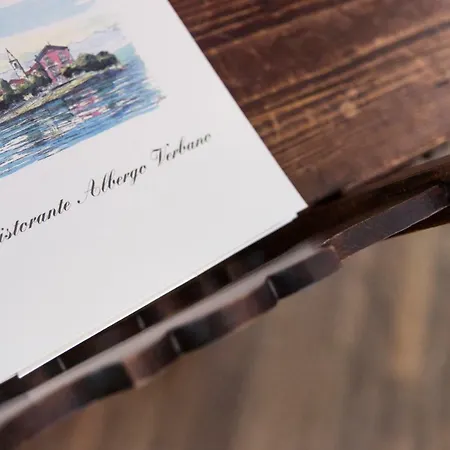 istorante Albergo Verbano